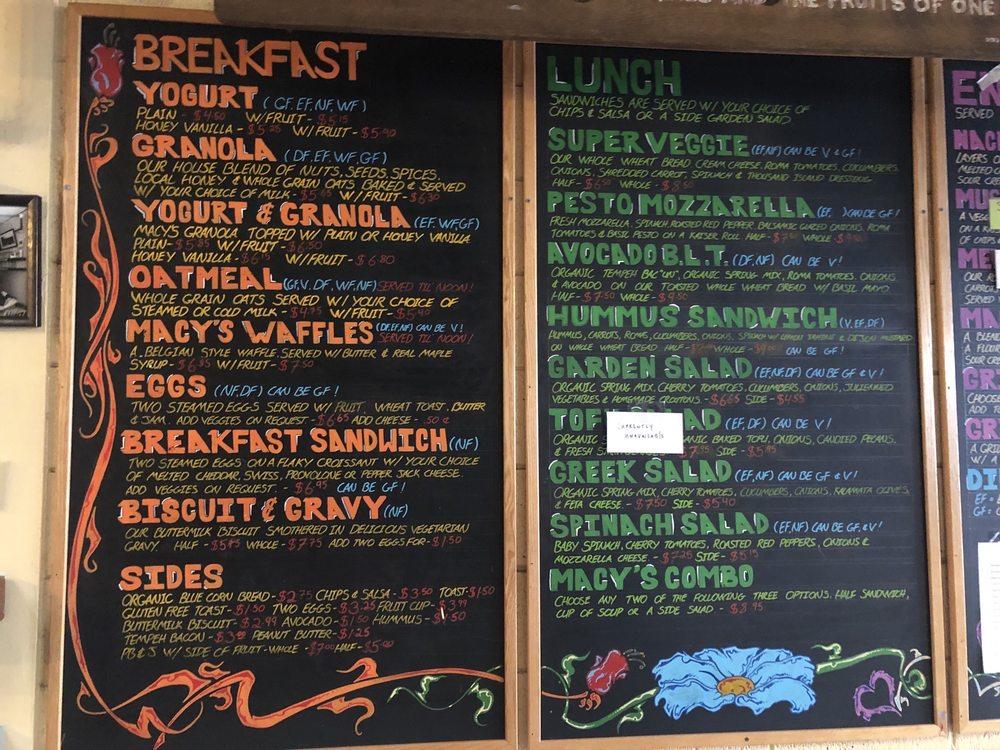 THE FRUITS OF ONE
BREAKFAST
YOGURT (GF, EF, NF, WF)
PLAIN - $4.50 W/FRUIT - $5.15
HONEY VANILLA - $5.25 W/FRUIT - $5.90
GRANOLA (DF, EF, WF, GF)
OUR HOUSE BLEND OF NUTS, SEEDS, SPICES,
LOCAL HONEY & WHOLE GRAIN OATS BAKED & SERVED
W/ YOUR CHOICE OF MILK - W/FRUIT - $6.30
YOGURT & GRANOLA (EF, WF, GF)
MACY'S GRANOLA TOPPED W/ PLAIN OR HONEY VANILLA
PLAIN - $5.85 W/FRUIT - $6.50
HONEY VANILLA - $6.15 W/FRUIT - $6.80
OATMEAL (GF, V, DF, WF, NF) SERVED TIL NOON!
WHOLE GRAIN OATS SERVED W/ YOUR CHOICE OF
STEAMED OR COLD MILK - $4.75 W/FRUIT - $5.40
MACY'S WAFFLES (DF, EF, NF) CAN BE V!
SERVED TIL NOON!
A BELGIAN STYLE WAFFLE SERVED W/ BUTTER & REAL MAPLE
SYRUP - $6.35 W/FRUIT - $7.50
EGGS (NF, DF) CAN BE GF!
TWO STEAMED EGGS SERVED W/ FRUIT, WHEAT TOAST, BUTTER
& JAM. ADD VEGGIES ON REQUEST - $6.65 ADD CHEESE - .50¢
BREAKFAST SANDWICH (NF)
TWO STEAMED EGGS ON A FLAKY CROISSANT W/ YOUR CHOICE
OF MELTED CHEDDAR, SWISS, PROVOLONE OR PEPPER JACK CHEESE.
ADD VEGGIES ON REQUEST - $6.95 CAN BE GF!
BISCUIT & GRAVY (NF)
OUR BUTTERMILK BISCUIT SMOTHERED IN DELICIOUS VEGETARIAN
GRAVY. HALF - $5.45 WHOLE - $7.75 ADD TWO EGGS FOR - $1.50
SIDES
ORGANIC BLUE CORN BREAD - $2.75 CHIPS & SALSA - $3.50 TOAST - $1.50
GLUTEN FREE TOAST - $1.50 TWO EGGS - $3.25 FRUIT CUP - $3.99
BUTTERMILK BISCUIT - $2.99 AVOCADO - $1.50 HUMMUS - $1.50
TEMPEH BACON - $3.99 PEANUT BUTTER - $1.25
PB & J W/ SIDE OF FRUIT - WHOLE - $7.00 HALF - $5.00
LUNCH
SANDWICHES ARE SERVED W/ YOUR CHOICE OF
CHIPS & SALSA OR A SIDE GARDEN SALAD
SUPER VEGGIE (EF, NF) CAN BE V & GF!
OUR WHOLE WHEAT BREAD CREAM CHEESE, ROMA TOMATOES, CUCUMBERS,
ONIONS, SHREDDED CARROT, SPINACH & THOUSAND ISLAND DRESSING.
HALF - $6.50 WHOLE - $8.50
PESTO MOZZARELLA (EF, ) CAN BE GF!
FRESH MOZZARELLA, SPINACH, ROASTED RED PEPPER, BALSAMIC CURED ONIONS, ROMA
TOMATOES & BASIL PESTO ON A KAISER ROLL HALF - WHOLE -
AVOCADO B.L.T. (DF, NF) CAN BE V!
ORGANIC TEMPEH BAC"UN", ORGANIC SPRING MIX, ROMA TOMATOES, ONIONS
& AVOCADO ON OUR TOASTED WHOLE WHEAT BREAD W/ BASIL MAYO.
HALF - $7.50 WHOLE - $9.50
HUMMUS SANDWICH (V, EF, DF)
HUMMUS, CARROTS, ROMAS, CUCUMBERS, ONIONS, SPINACH W/ LEMON TAHINI & DIJON MUSTARD
ON WHOLE WHEAT BREAD HALF - WHOLE - CAN BE GF!
GARDEN SALAD (EF, NF, DF) CAN BE GF & V!
ORGANIC SPRING MIX, CHERRY TOMATOES, CUCUMBERS, ONIONS, JULIENNED
VEGETABLES & HOMEMADE CROUTONS - $6.65 SIDE - $4.55
TOFU SALAD (EF, DF) CAN BE V!
CURRENTLY
UNAVAILABLE
ORGANIC BAKED TOFU, ONIONS, CANDIED PECANS,
& FRESH SIDE -
GREEK SALAD (EF, NF) CAN BE GF & V!
ORGANIC SPRING MIX, CHERRY TOMATOES, CUCUMBERS, ONIONS, KALAMATA OLIVES,
& FETA CHEESE - $7.50 SIDE - $5.40
SPINACH SALAD (EF, NF) CAN BE GF, & V!
BABY SPINACH, CHERRY TOMATOES, ROASTED RED PEPPERS, ONIONS &
MOZZARELLA CHEESE - $7.25 SIDE - $5.15
MACY'S COMBO
CHOOSE ANY TWO OF THE FOLLOWING THREE OPTIONS. HALF SANDWICH,
CUP OF SOUP OR A SIDE SALAD - $8.95
EN
SERVED
NAC
LAYERS
MELTED
SOUR CRE
MUS
A VEGG
ON A K
OF CHIPS
ME
OUR
SERVED
MA
A BLEND
A FLOUR
SOUR CRE
GR
CHOOSE
ADD T
GR
A GRI
W/ A
DI
EF =
GF =